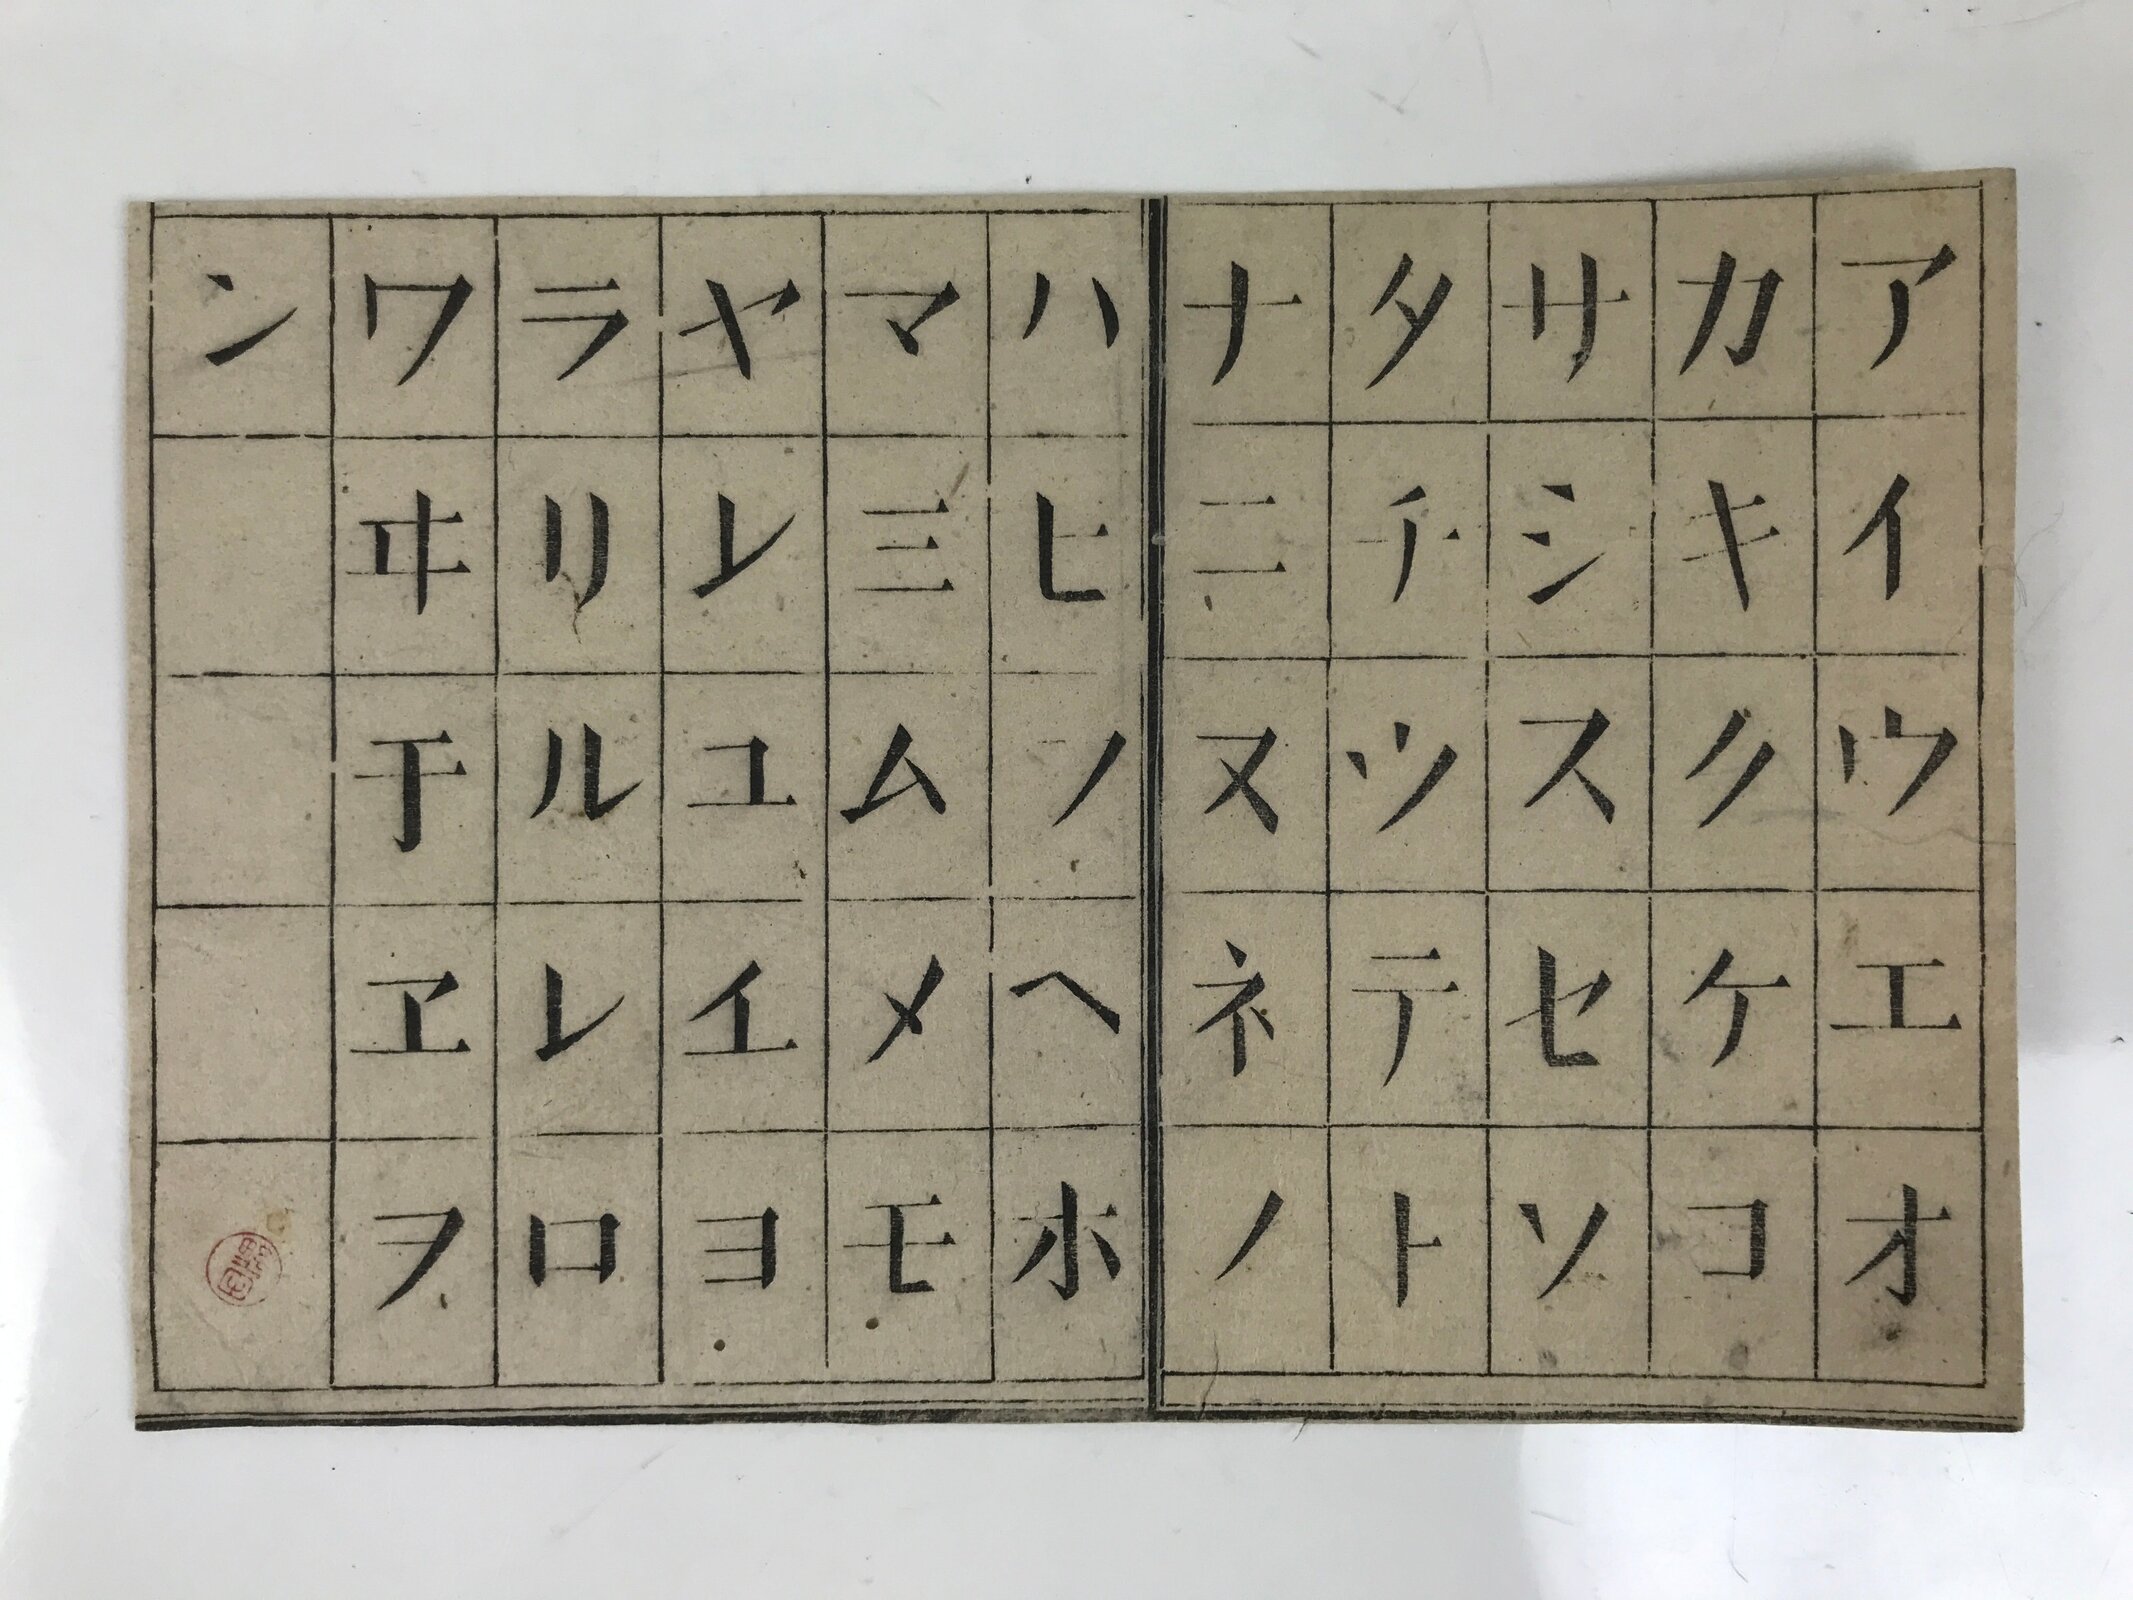 アイウエオ
カキクケコ
サシスセソ
タチツテト
ナニヌネノ
ハヒフヘホ
マミムメモ
ヤ𛄠ユ𛄡ヨ
ラリルレロ
ワヰ𛄢ヱヲ
ン